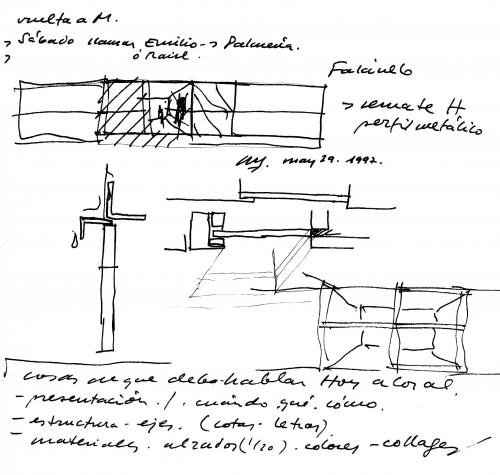 vuelta a M.
> Sábado llamar Emilio → Palmeria.
> ó Raul.
Falcinelo
> remate H
perfil metálico
may 29. 1992.
cosas de que debo hablar Hoy a coral.
- presentación. /. cuándo. qué. cómo.
- estructura - ejes. (cotas - letras)
- materiales. alzados (1/20). colores - collages